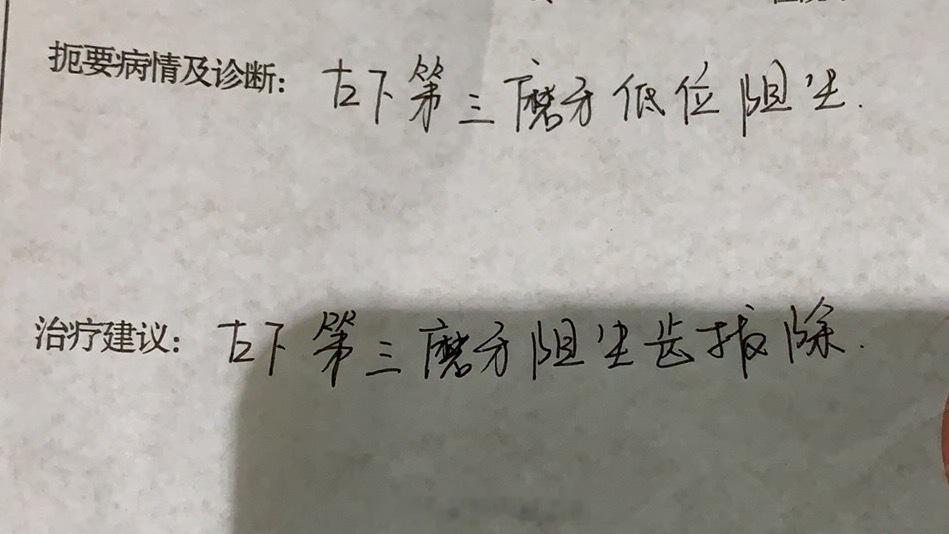 扼要病情及诊断：右下第三磨牙低位阻生.
治疗建议：右下第三磨牙阻生齿拔除.